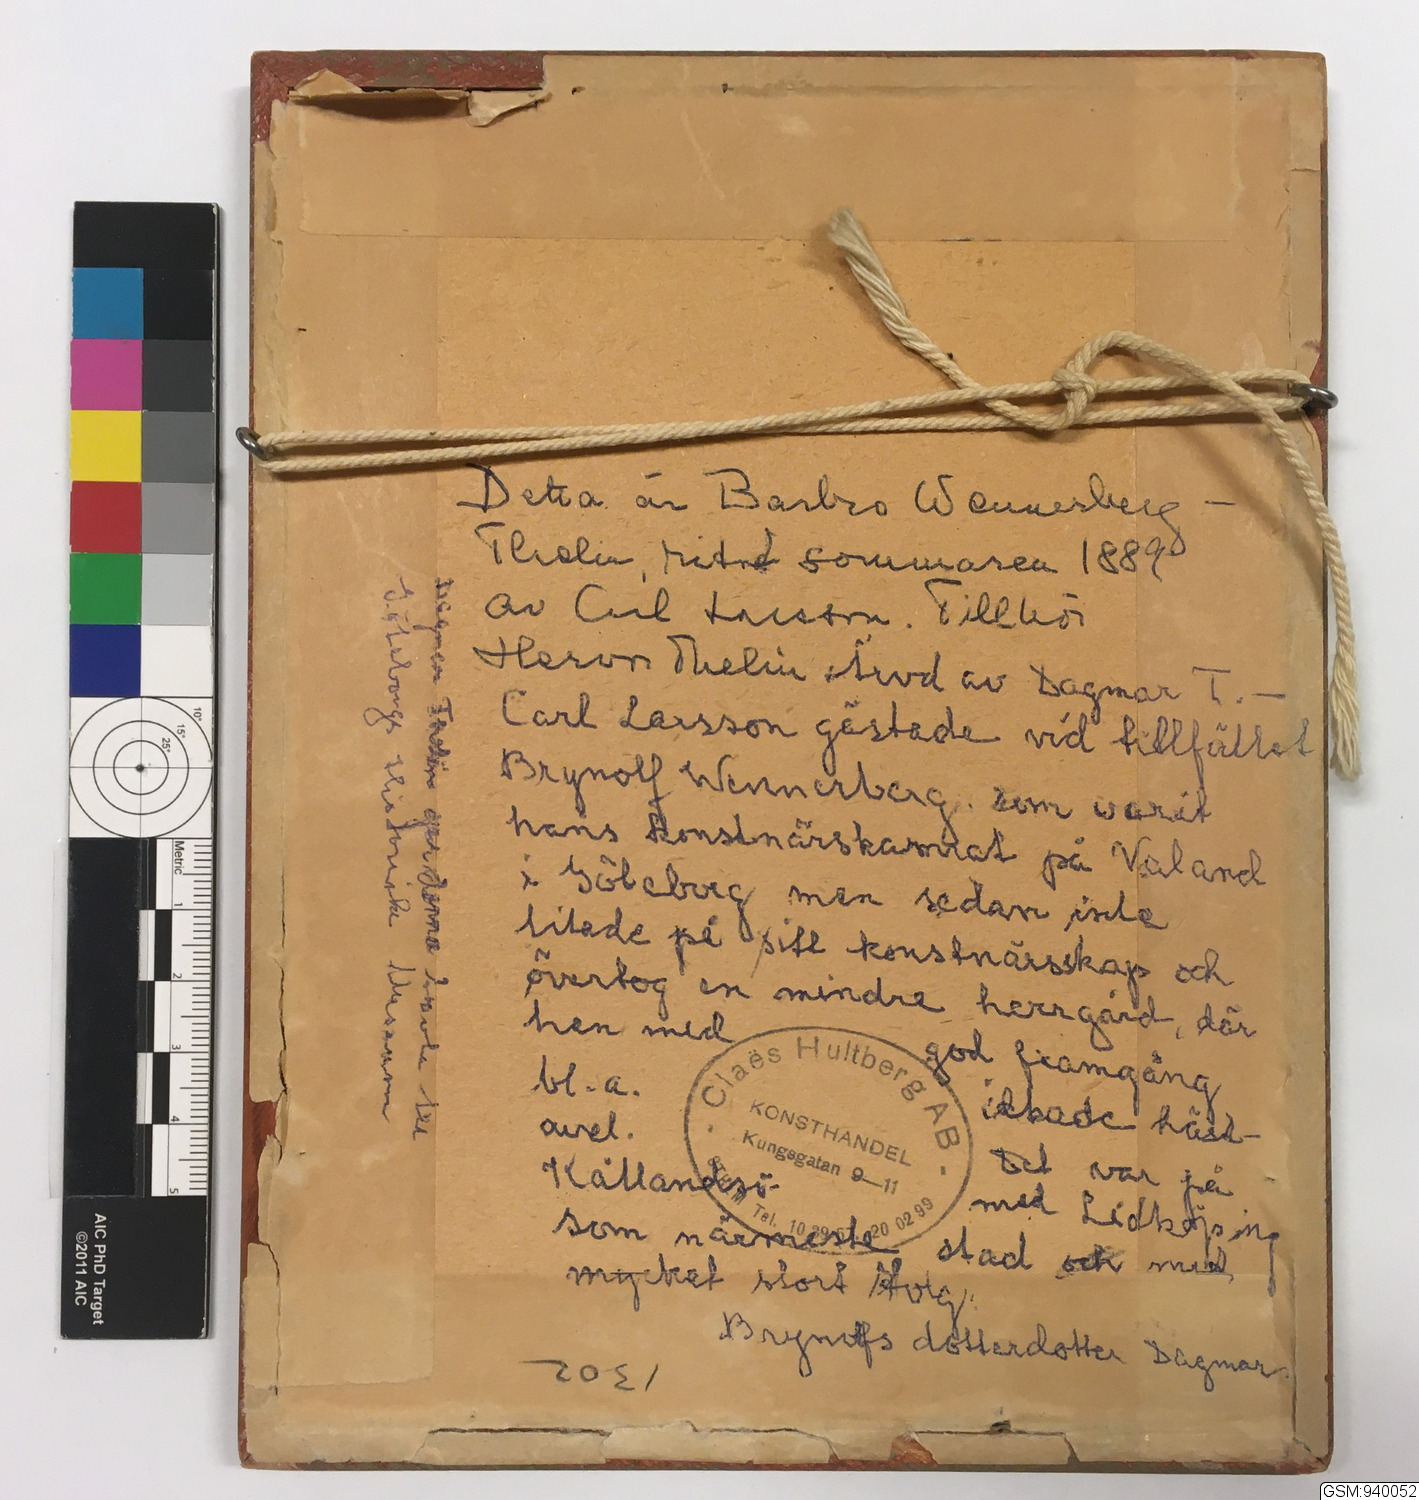 Detta är Barbro Wennerberg –
Thelin, ritad sommaren 1889
av Carl Larsson. Tillhör
Thelin ärvd av Dagmar T. –
Carl Larsson gästade vid tillfället
Brynolf Wennerberg, som varit
hans konstnärskamrat på Valand
i Göteborg men sedan inte
litade på sitt konstnärsskap och
övertog en mindre herrgård, där
han med god framgång
bl.a. idkade häst-
avel. Det var på
Kållandsö med Lidköping
som närmeste stad och med
mycket stort
Brynolfs dotterdotter Dagmar
Dagmar Thelin denna tavla till
Göteborgs Historiska Museum
Claës Hultberg AB
KONSTHANDEL
Kungsgatan 9–11
Tel. 20 02 99
1302
10°
15°
25°
Metric
1
2
3
4
5
AIC PhD Target
©2011 AIC
GSM:940052